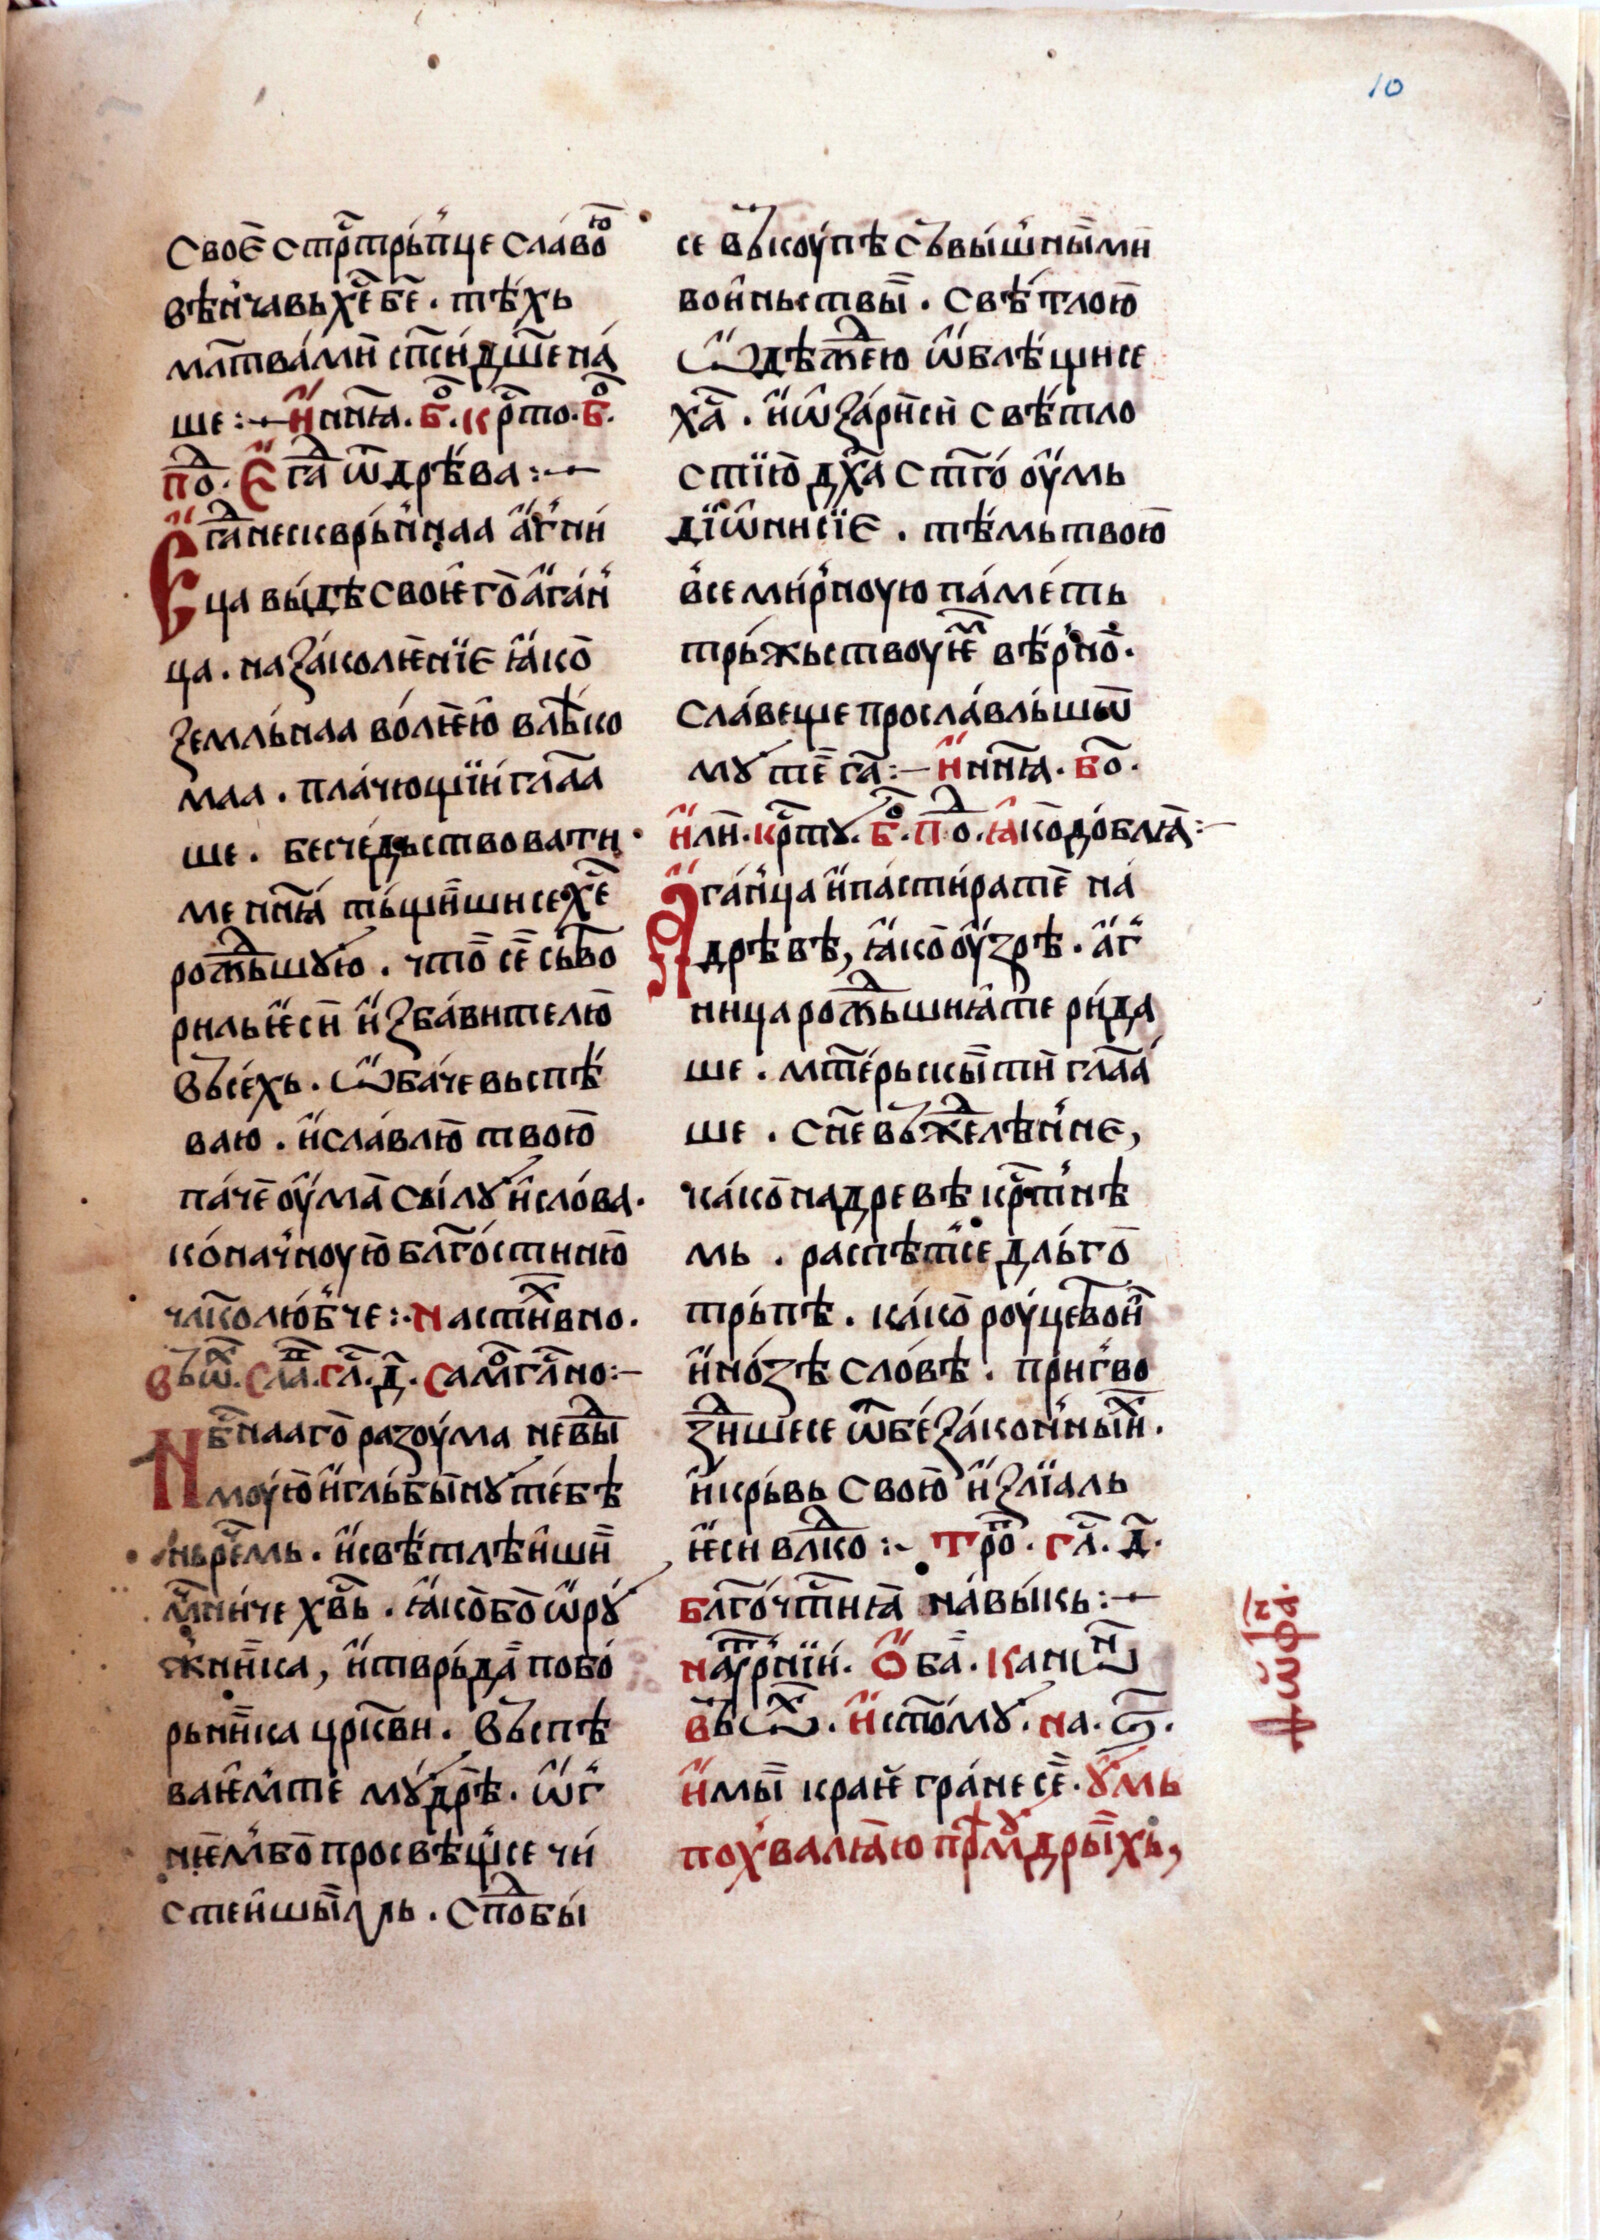 10
своѥ̑ стртⷭ҇рьпце славою
вѣнчавь хе҃ бе҃. тѣхь
млт҃вами спс҃и дш҃е на
ше:~ И нн҃ꙗ. бо҃. крⷭ҇то. бо҃.
поⷣ. Ѥгⷣа ѿ дрѣва:~
Ѥгⷣа нескврьннаа агни
ца видѣ своѥго аган
ца. на заколѥниѥ ꙗко
земльнаа волѥю влⷣко
маа. плачющїи глⷭ҇а
ше. бесчедьствовати
ме нн҃ꙗ тьщишисе хе҃
рожⷣьшую. что се сьтво
риль ѥси избавителю
вьсехь. ѡбаче вьспѣ
ваю. и славлю твою
паче оума силу и слова.
коначноую блг҃остиню
чл҃колюбче:· На стиховно.
вь ѡхⷮ. слаⷡ. гла҃. д҃. самогла҃но:~
Нбⷭ҇нааго разоума невьⷣ
моую и гльбину тебѣ
ньремь. и свѣтлѣиши
мч҃ниче хв҃ь. ꙗко бо ѡру
жника, и тврьда побо
рьника црк҃ви. вьспѣ
ваѥмте мудрѣ. ѡг
нѥмь бо просвѣщьсе чи
стеишимь. сьпоⷣби
се вькоупѣ сьвишними
воиньстви. свѣтлою
ѡдѣждⷣею ѡблѣщисе
хаⷭ҇. и ѡзарисеи свѣтло
стїю дх҃а ст҃го оумь
дїѡнисїѥ. тѣмь твою
всемирноую паметь
трьжьствоуѥмⷨ вѣрно.
славеще прославльшѡ
му те га҃:~ И нн҃ꙗ. бо҃.
или. крⷭ҇ту. бо҃. поⷣ. ꙗко доблꙗ:~
Аганца и пастира те на
дрѣвѣ, ꙗко оузрѣ. аг
ница рожⷣьшиꙗ те рида
ше. мт҃ерьскы ти глⷭ҇а
ше. сн҃е вьжⷣелѣнне,
како на древѣ крⷭ҇тнѣ
мь. распѣтсе дльго
трьпѣ. како роуце твои
и нозѣ слове. пригво
здⷣишесе ѿ безаконныиⷯ.
и крьвь свою излїаль
ѥси влⷣко:~ Троⷫ. гла҃. д҃.
Блг҃очтⷭ҇иꙗ навыкь:~
На оутрⷬнїи. Ѡба. канѡⷩ
вь ѡхⷮ. и ст҃ому. на. ѕ҃.
имы краѥгранесе. Умь
похвалꙗю прⷨѣмудрыхь,
дифⷩа.